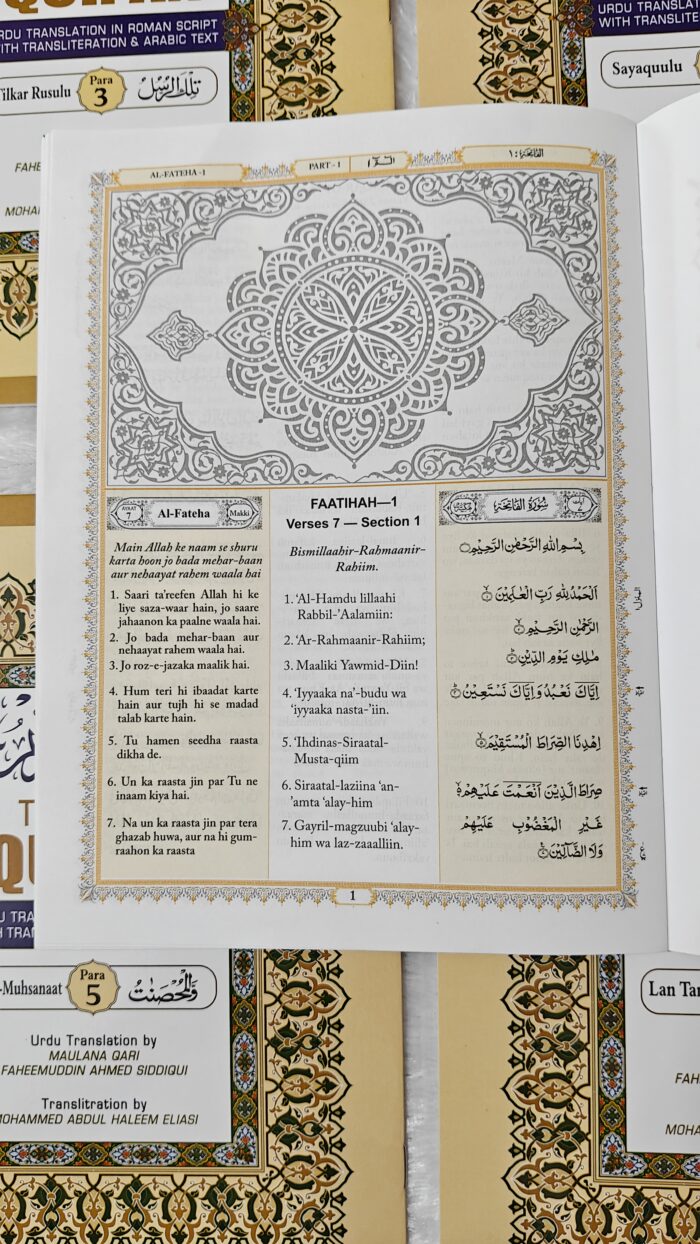 RDU TRANSLATION IN ROMAN SCRIPT
ITH TRANSLITERATION & ARABIC TEXT
URDU TRANSLAT
WITH TRANSLITE
Tilkar Rusulu
Para
3
تِلْكَ الرُّسُلُ
Sayaquulu
FAHE
MOHA
AL-FATEHA -1
PART - 1
الٓـمّٓ ١
الفَاتِحَة : ١
AYAAT
7
Al-Fateha
Makki
Main Allah ke naam se shuru
karta hoon jo bada mehar-baan
aur nehaayat rahem waala hai
1. Saari ta'reefen Allah hi ke
liye saza-waar hain, jo saare
jahaanon ka paalne waala hai.
2. Jo bada mehar-baan aur
nehaayat rahem waala hai.
3. Jo roz-e-jazaka maalik hai.
4. Hum teri hi ibaadat karte
hain aur tujh hi se madad
talab karte hain.
5. Tu hamen seedha raasta
dikha de.
6. Un ka raasta jin par Tu ne
inaam kiya hai.
7. Na un ka raasta jin par tera
ghazab huwa, aur na hi gum-
raahon ka raasta
FAATIHAH—1
Verses 7 — Section 1
Bismillaahir-Rahmaanir-
Rahiim.
1. ‘Al-Hamdu lillaahi
Rabbil-’Aalamiin:
2. ‘Ar-Rahmaanir-Rahiim;
3. Maaliki Yawmid-Diin!
4. ‘Iyyaaka na’-budu wa
‘iyyaaka nasta-’iin.
5. ‘Ihdinas-Siraatal-
Musta-qiim
6. Siraatal-laziina ‘an-
’amta ‘alay-him
7. Gayril-magzuubi ‘alay-
him wa laz-zaaalliin.
سُوْرَةُ الْفَاتِحَةِ
بِسْمِ اللهِ الرَّحْمٰنِ الرَّحِيْمِ
اَلْحَمْدُ لِلّٰهِ رَبِّ الْعٰلَمِيْنَ ۙ﴿۱﴾
الرَّحْمٰنِ الرَّحِيْمِ ۙ﴿۲﴾
مٰلِكِ يَوْمِ الدِّيْنِ ؕ﴿۳﴾
اِيَّاكَ نَعْبُدُ وَاِيَّاكَ نَسْتَعِيْنُ ؕ﴿۴﴾
اِهْدِنَا الصِّرَاطَ الْمُسْتَقِيْمَ ۙ﴿۵﴾
صِرَاطَ الَّذِيْنَ اَنْعَمْتَ عَلَيْهِمْ ۙ﴿۶﴾
غَيْرِ الْمَغْضُوْبِ عَلَيْهِمْ
وَلَا الضَّآلِّيْنَ ﴿۷﴾
1
T
QU
DU TRA
H TRAN
-Muhsanaat
Para
5
وَالْمُحْصَنٰتُ
Urdu Translation by
MAULANA QARI
FAHEEMUDDIN AHMED SIDDIQUI
Translitration by
MOHAMMED ABDUL HALEEM ELIASI
Lan Tan
FAH
MOHA